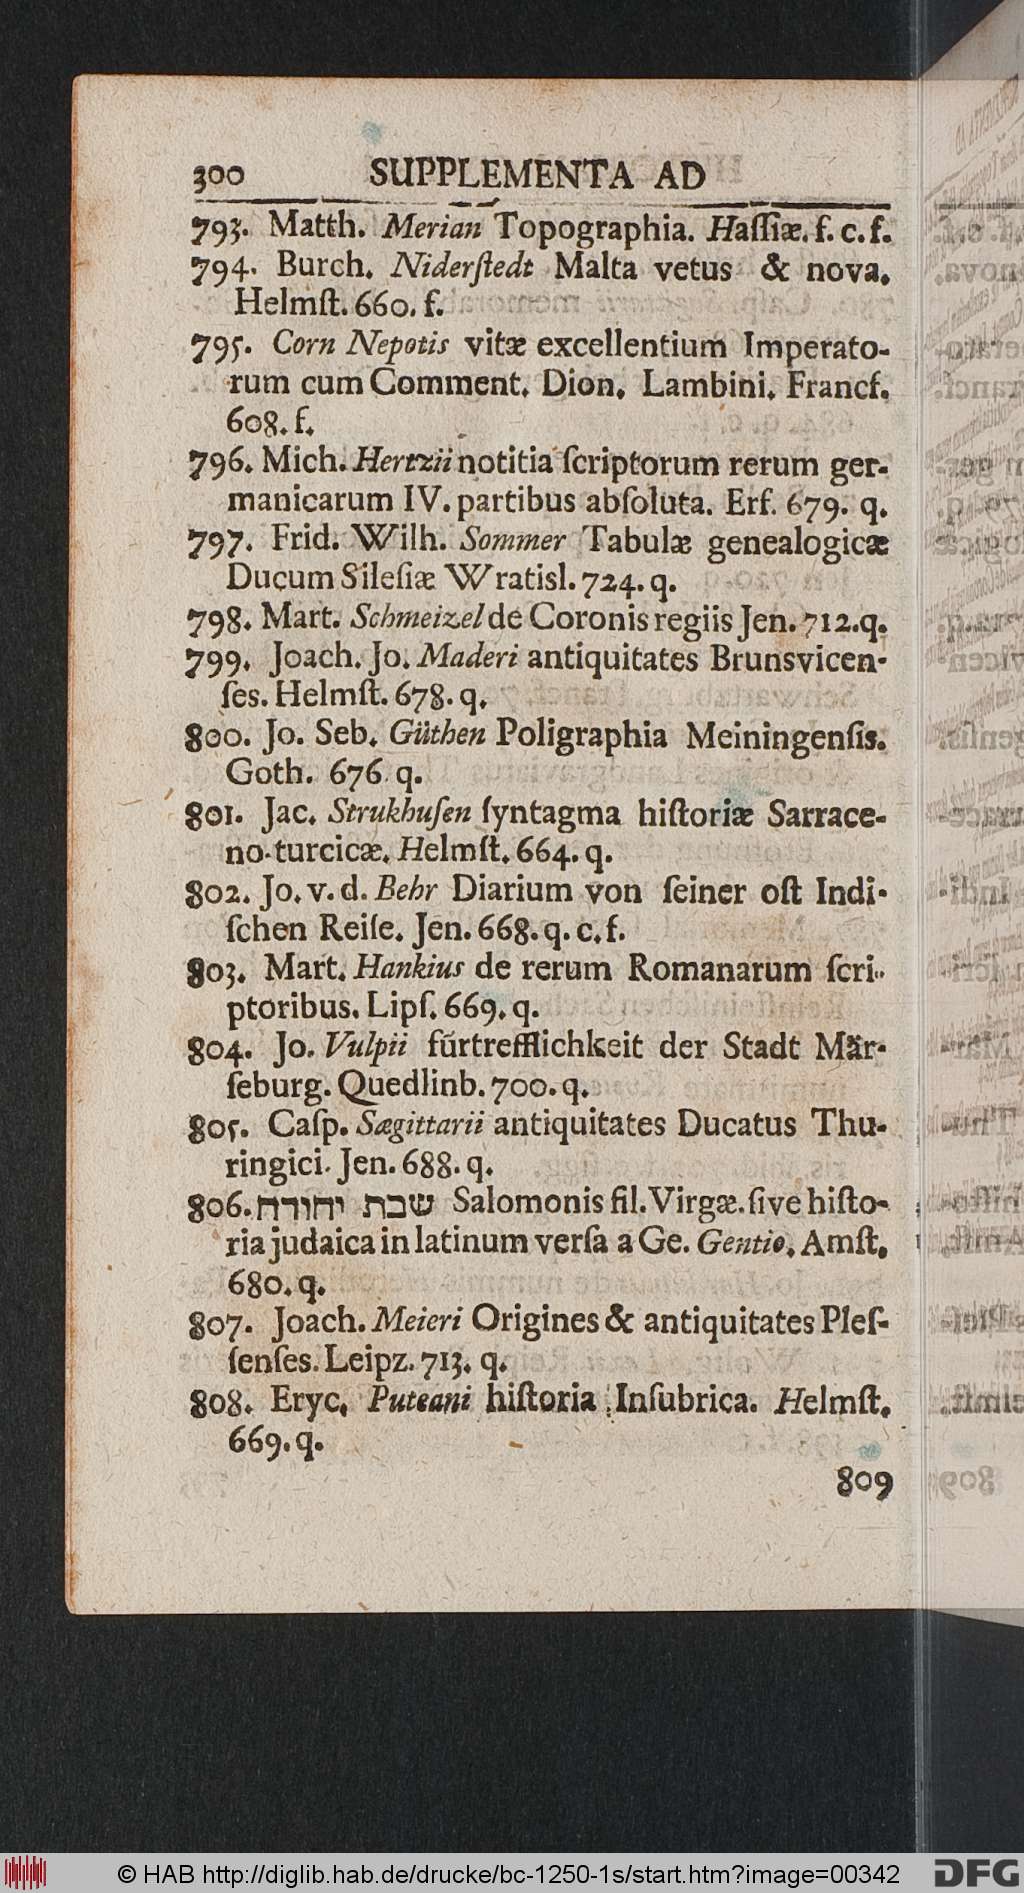 300 SUPPLEMENTA AD
793. Matth. Merian Topographia. Haſſiæ. f. c. f.
794. Burch. Niderſtedt Malta vetus & nova.
Helmſt. 660. f.
795. Corn Nepotis vitæ excellentium Imperato-
rum cum Comment. Dion. Lambini. Francf.
608. f.
796. Mich. Hertzii notitia ſcriptorum rerum ger-
manicarum IV. partibus abſoluta. Erf. 679. q.
797. Frid. Wilh. Sommer Tabulæ genealogicæ
Ducum Sileſiæ Wratisl. 724. q.
798. Mart. Schmeizel de Coronis regiis Jen. 712. q.
799. Joach. Jo. Maderi antiquitates Brunsvicen-
ſes. Helmſt. 678. q.
800. Jo. Seb. Güthen Poligraphia Meiningenſis.
Goth. 676. q.
801. Jac. Strukhuſen ſyntagma hiſtoriæ Sarrace-
no-turcicæ. Helmſt. 664. q.
802. Jo. v. d. Behr Diarium von ſeiner oſt Indi-
ſchen Reiſe. Jen. 668. q. c. f.
803. Mart. Hankius de rerum Romanarum ſcri-
ptoribus. Lipſ. 669. q.
804. Jo. Vulpii fürtrefflichkeit der Stadt Mär-
ſeburg. Quedlinb. 700. q.
805. Caſp. Sægittarii antiquitates Ducatus Thu-
ringici. Jen. 688. q.
806. שבת יהודה Salomonis fil. Virgæ. ſive hiſto-
ria judaica in latinum verſa a Ge. Gentio. Amſt.
680. q.
807. Joach. Meieri Origines & antiquitates Pleſ-
ſenſes. Leipz. 713. q.
808. Eryc. Puteani hiſtoria Inſubrica. Helmſt.
669. q.
809
© HAB http://diglib.hab.de/drucke/bc-1250-1s/start.htm?image=00342
DFG